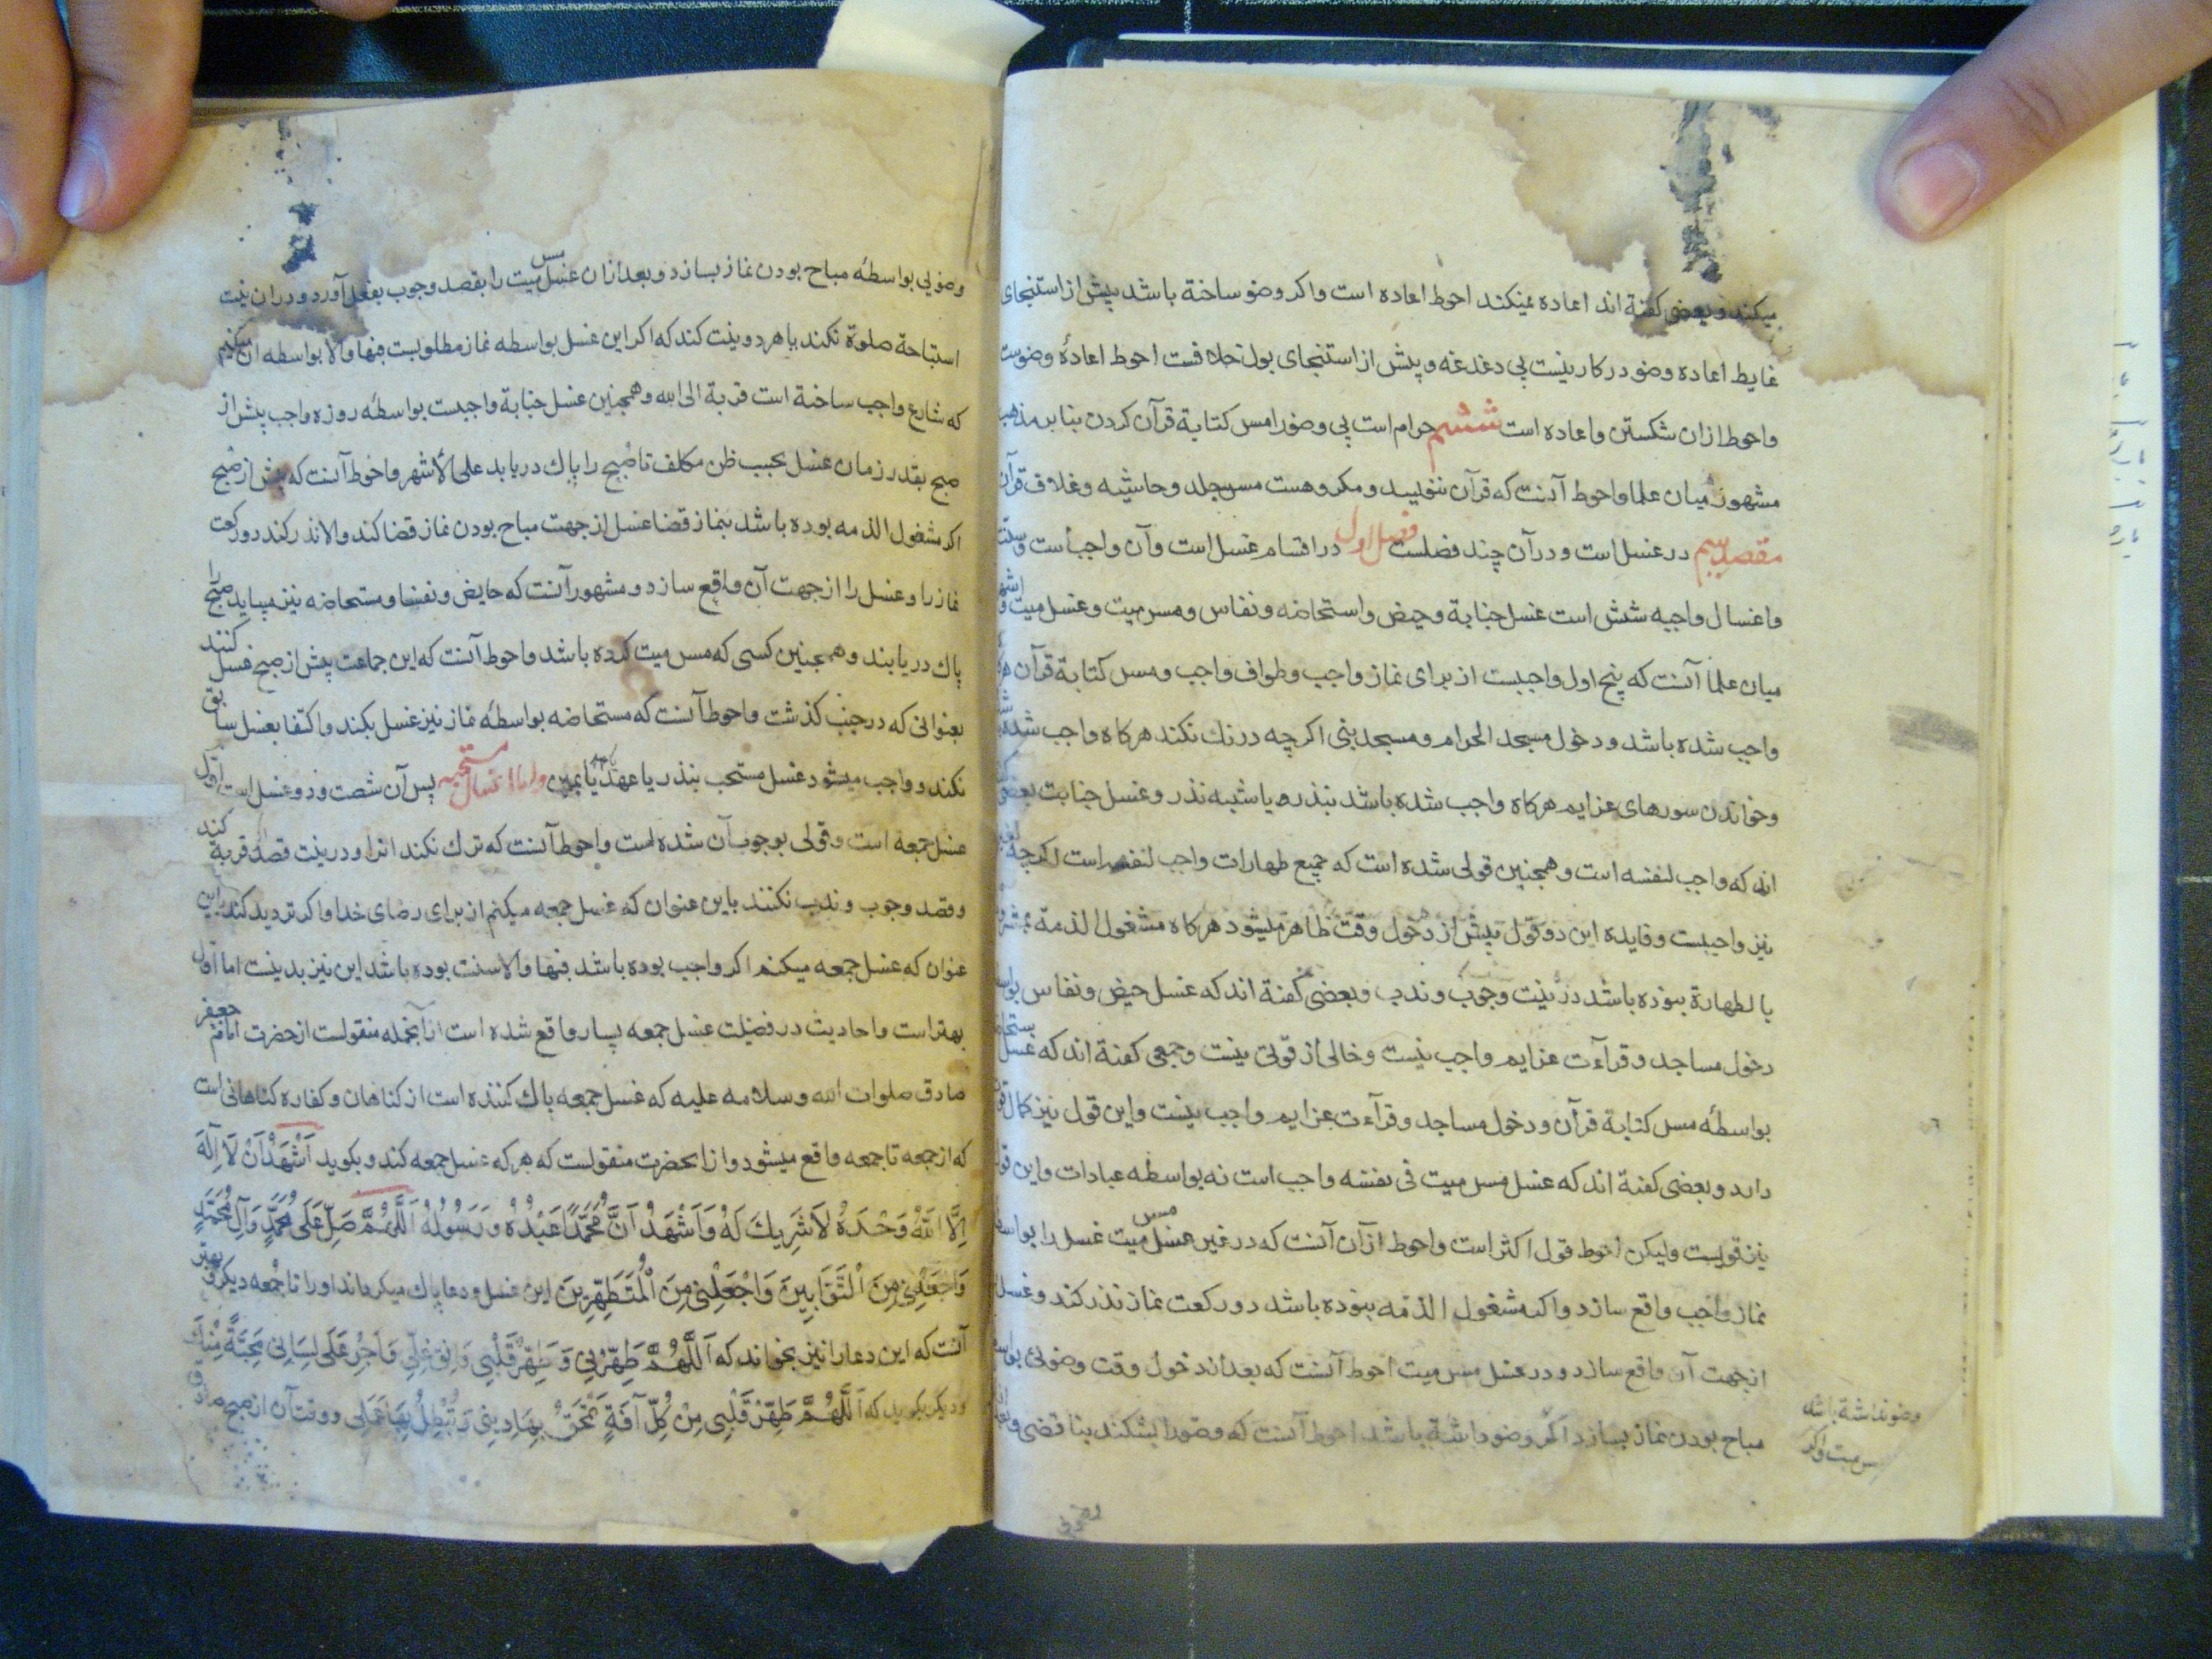 میکند و بعضی کفته اند اعاده نمیکند احوط اعاده است واکر وضو ساخته باشد پیش از استنجای
غایط اعاده وضو درکار نیست بی دغدغه و پیش از استنجای بول خلافست احوط اعادهٔ وضوست
واحوط ازان شکستن واعاده است ششم حرام است بی وضو را مس کتابة قرآن کردن بنابر مذهب
مشهور میان علما واحوط آنست که قرآن ننویسد و مکروهست مس جلد وحاشیه وغلاف قرآن
مقصد سیم در غسل است و درآن چند فصلست فصل اول در اقسام غسل است وآن واجبست وسنت
واغسال واجبه شش است غسل جنابة وحیض واستحاضه ونفاس ومس میت وغسل میت و اشهر
میان علما آنست که پنج اول واجبست از برای نماز واجب وطواف واجب ومس کتابة قرآن
واجب شده باشد ودخول مسجد الحرام ومسجد بنی اکرچه درنك نکند هرکاه واجب شده
وخواندن سورهای عزایم هرکاه واجب شده باشد بنذر ویا شبه نذر وغسل جنابت بعضی
اند که واجب لنفسه است وهمچنین قولی شده است که جمیع طهارات واجب لنفسه است اکرچه
نیز واجبست وفایده این دو قول پیش از دخول وقت ظاهر میشود هرکاه مشغول الذمة بمشروط
بالطهارة نبوده باشد در نیت وجوب وندب وبعضی کفته اند که غسل حیض ونفاس بواسطه
دخول مساجد وقرآءت عزایم واجب نیست وخالی از قوتی نیست وجمعی کفته اند که غسل
بواسطهٔ مس کتابة قرآن ودخول مساجد وقرآءت عزایم واجب نیست واین قول نیز کمال قوت
دارد وبعضی کفته اند که غسل مس میت فی نفسه واجب است نه بواسطه عبادات واین قول
نیز قولیست ولیکن احوط قول اکثر است واحوط ازآن آنست که در غیر غسل مس میت غسل را بواسطه
نماز واجب واقع سازد واکر مشغول الذمه نبوده باشد دو رکعت نماز نذر کند وغسل
ازجهت آن واقع سازد ودر غسل مس میت احوط آنست که بعد از دخول وقت وضوئی بواسطه
مباح بودن نماز بسازد اکر وضو داشته باشد احوط آنست که وضو را بشکند بناقضی وبعد
وضو نداشته باشد
مس میت واکر
وضوئی
وضویی بواسطهٔ مباح بودن نماز بسازد وبعد ازان غسل مس میت را بقصد وجوب بفعل آورد ودران نیت
استباحة صلوة نکند یا هر دو نیت کند که اکر این غسل بواسطه نماز مطلوبست فبها والا بواسطه آن میکنم
که شارع واجب ساخته است قربة الی الله وهمچنین غسل جنابة واجبست بواسطهٔ روزه واجب پیش از
صبح بقدر زمان غسل بحسب ظن مکلف تا صبح را پاك دریابد علی الأشهر واحوط آنست که پیش از صبح
اکر مشغول الذمه بوده باشد بنماز قضا غسل از جهت مباح بودن نماز قضا کند والا نذر کند دو رکعت
نماز را وغسل را از جهت آن واقع سازد ومشهور آنست که حایض ونفسا ومستحاضه نیز میباید صبح را
پاك دریابند وهمچنین کسی که مس میت کرده باشد واحوط آنست که این جماعت پیش از صبح غسل کنند
بعنوانی که در جنب کذشت واحوط آنست که مستحاضه بواسطهٔ نماز نیز غسل بکند واکتفا بغسل سابق
نکند وواجب میشود غسل مستحب بنذر یا عهد یا یمین واما اغسال مستحبه پس آن شصت ودو غسل است اول
غسل جمعه است وقولی بوجوب آن شده است واحوط آنست که ترك نکند انرا ودر نیت قصد قربة کند
وقصد وجوب وندب نکنند باین عنوان که غسل جمعه میکنم از برای رضای خدا واکر تردید کند باین
عنوان که غسل جمعه میکنم اکر واجب بوده باشد فبها والا سنت بوده باشد این نیز بد نیست اما اول
بهتر است واحادیث در فضیلت غسل جمعه بسیار واقع شده است ازآنجمله منقولست از حضرت امام جعفر
صادق صلوات الله وسلامه علیه که غسل جمعه پاك کننده است از کناهان وکفاره کناهانی است
که از جمعه تا جمعه واقع میشود وازانحضرت منقولست که هر که غسل جمعه کند وبکوید اَشْهَدُ اَنْ لَا اِلٰهَ
اِلَّا اللّٰهُ وَحْدَهُ لَا شَرِيكَ لَهُ وَاَشْهَدُ اَنَّ مُحَمَّدًا عَبْدُهُ وَرَسُولُهُ اَللّٰهُمَّ صَلِّ عَلَى مُحَمَّدٍ وَآلِ مُحَمَّدٍ
وَاجْعَلْنِي مِنَ الْتَّوَّابِينَ وَاجْعَلْنِي مِنَ الْمُتَطَهِّرِينَ این غسل ودعا پاك میکرداند اورا تا جمعه دیکر وبهتر
آنست که این دعا را نیز بخواند که اَللّٰهُمَّ طَهِّرْنِي وَطَهِّرْ قَلْبِي وَاَنْقِ غِلِّي وَاَجْرِ عَلَى لِسَانِي مَحَبَّةً مِنْكَ
ودیکر بکوید که اَللّٰهُمَّ طَهِّرْ قَلْبِي مِنْ كُلِّ آفَةٍ تَمْحَقُ بِهَا دِينِي وَتُبْطِلُ بِهَا عَمَلِي ووقت آن از صبح صادق